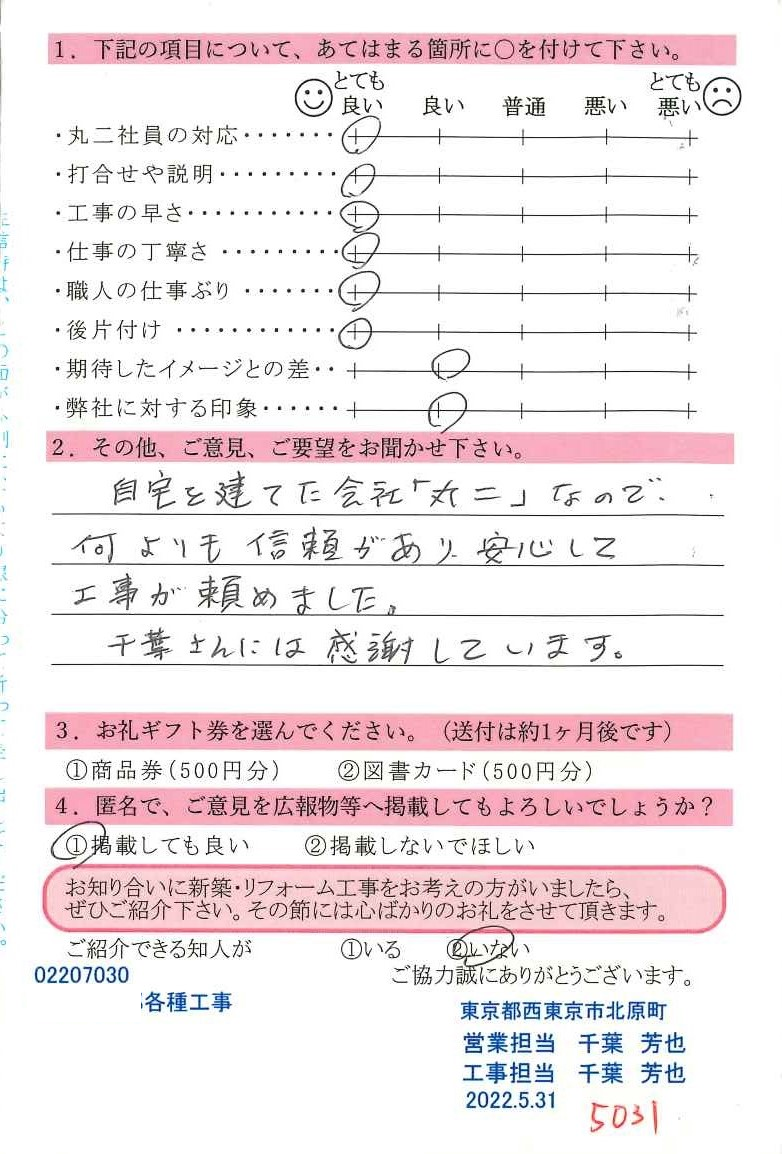 1. 下記の項目について、あてはまる箇所に○を付けて下さい。
とても良い 良い 普通 悪い とても悪い
・丸二社員の対応・・・・・・・
・打合せや説明・・・・・・・・・
・工事の早さ・・・・・・・・・・・
・仕事の丁寧さ・・・・・・・・・
・職人の仕事ぶり・・・・・・・
・後片付け・・・・・・・・・・・・
・期待したイメージとの差・・
・弊社に対する印象・・・・・・
2. その他、ご意見、ご要望をお聞かせ下さい。
自宅を建てた会社「丸二」なので、
何よりも信頼があり、安心して
工事が頼めました。
千葉さんには感謝しています。
3. お礼ギフト券を選んでください。(送付は約1ヶ月後です)
①商品券(500円分) ②図書カード(500円分)
4. 匿名で、ご意見を広報物等へ掲載してもよろしいでしょうか?
①掲載しても良い ②掲載しないでほしい
お知り合いに新築・リフォーム工事をお考えの方がいましたら、
ぜひご紹介下さい。その節には心ばかりのお礼をさせて頂きます。
ご紹介できる知人が ①いる ②いない
ご協力誠にありがとうございます。
02207030
各種工事
東京都西東京市北原町
営業担当 千葉 芳也
工事担当 千葉 芳也
2022.5.31
5031